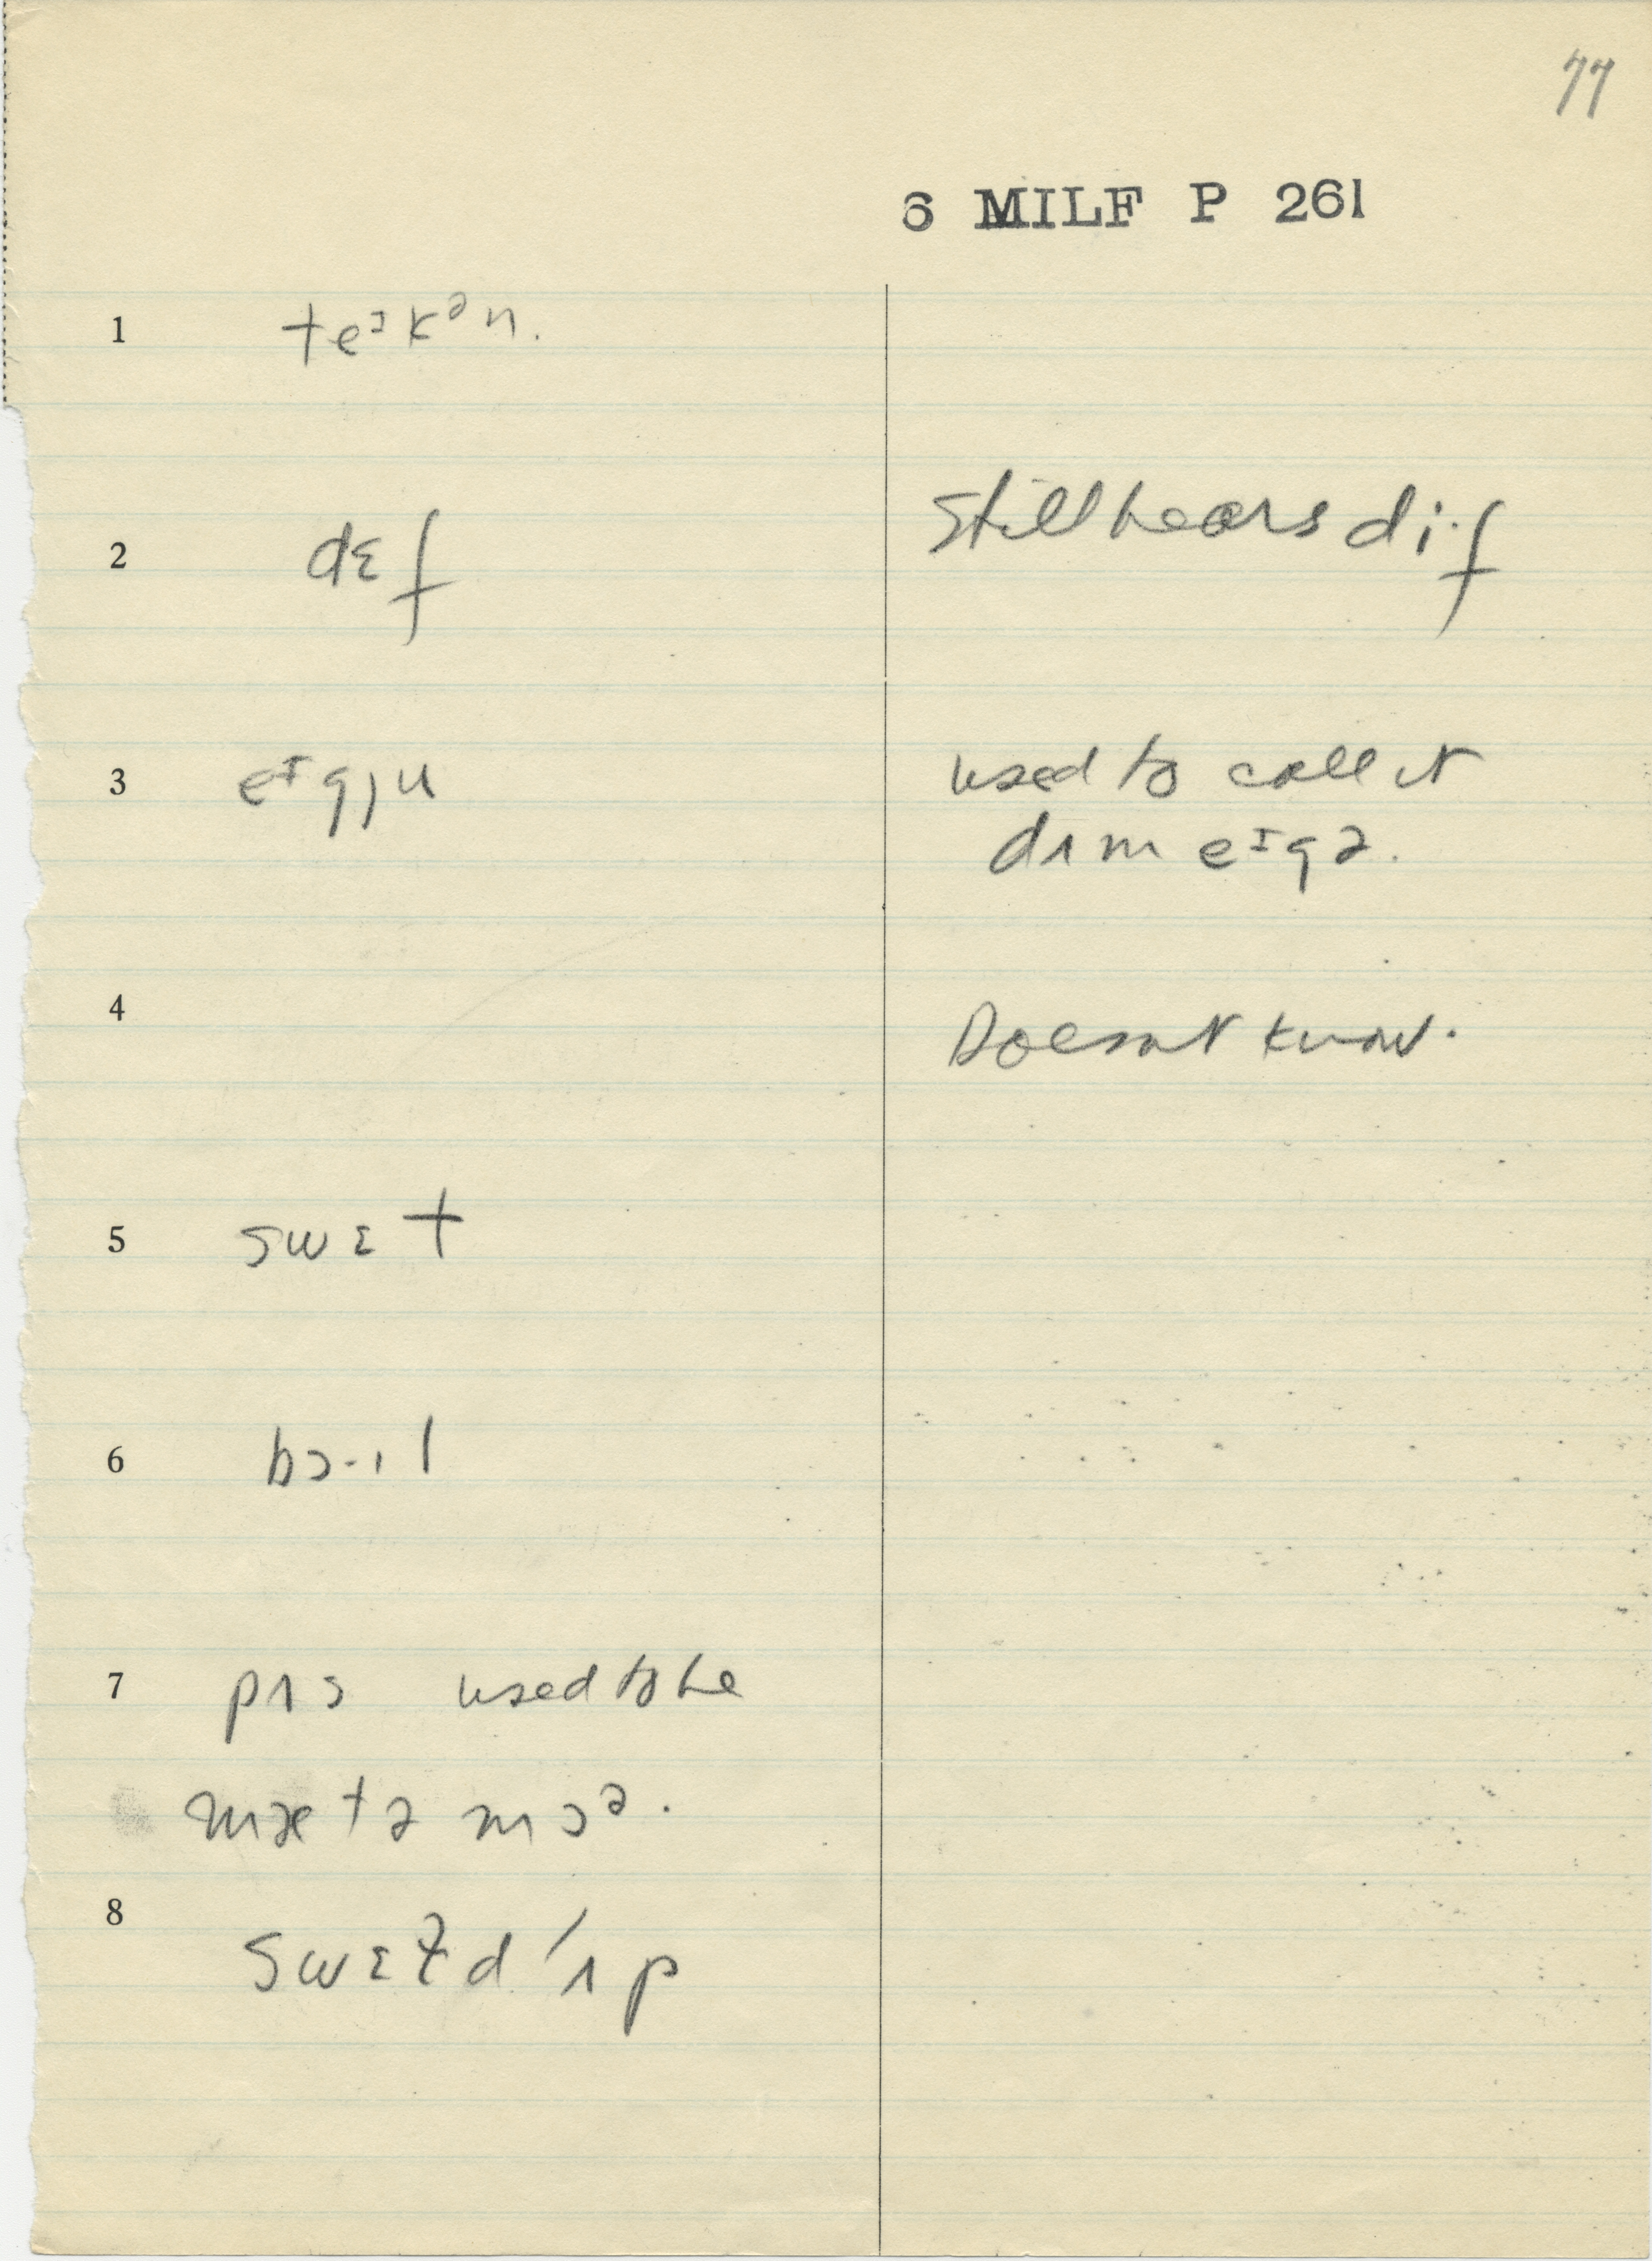 77
6 MILF P 261
1 teᴵkᵊn.
2 dɛf
Still hears di·f
3 eᴵgju
used to call it
dʌm eᴵgə.
4
Doesn't know.
5 swɛt
6 bɔ·ɪl
7 pʌs used to be
mætə mɔᵊ.
8 swɛt̬d ˊʌp